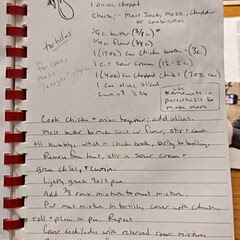 1 onion, chopped
cheese - Mont. Jack, Mozz, Cheddar
or combination
tortillas
1/4 c butter (3/4 c)
1/4 c flour
1 (15oz) can chicken broth - (3c)
1 c. sour cream (1½ - 2 c)
1 (4oz) can chopped chilies (7oz can)
1 can olives, sliced
cumin? 2 t.
use
amounts in
parenthesis to
make more
Cook chicken + onion together; add olives.
Melt butter to make; flour, stir + cook
til bubbly, whisk in chick. broth, bring to boiling.
Remove from heat, stir in sour cream +
green chilies, + cumin.
Lightly grease 9x13 pan.
Add 1/3 sauce mixture to meat mixture.
Put meat mixture in tortilla, cover with cheese,
roll + place in pan. Repeat
Cover enchiladas with reserved sauce mixture